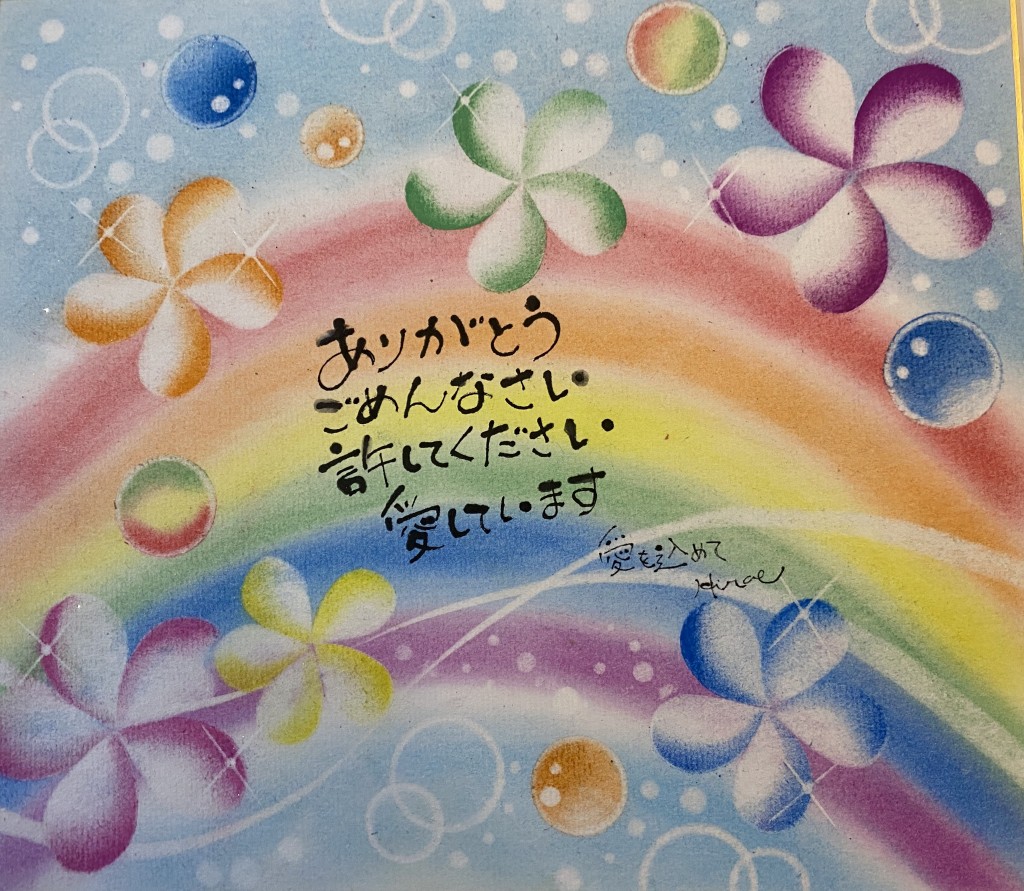 ありがとう
ごめんなさい
許してください
愛しています
愛を込めて
Hirae